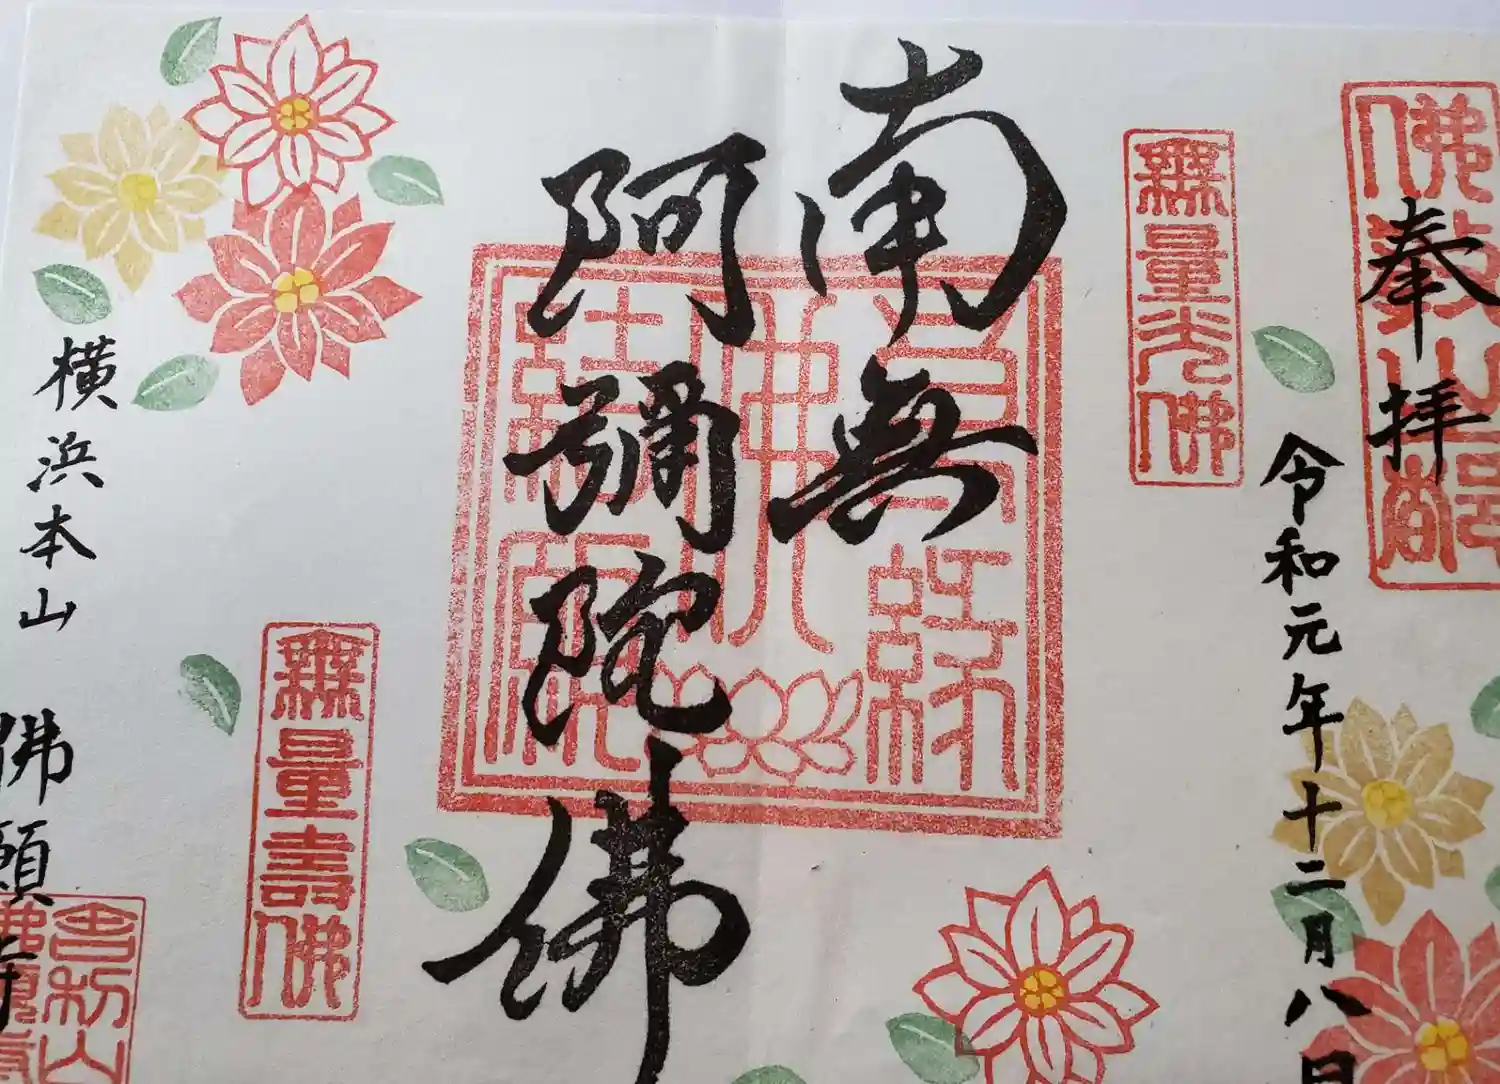 奉拝
令和元年十二月八日
無量光佛
南無
阿彌陀佛
無量壽佛
横浜本山 佛願寺
舎利山